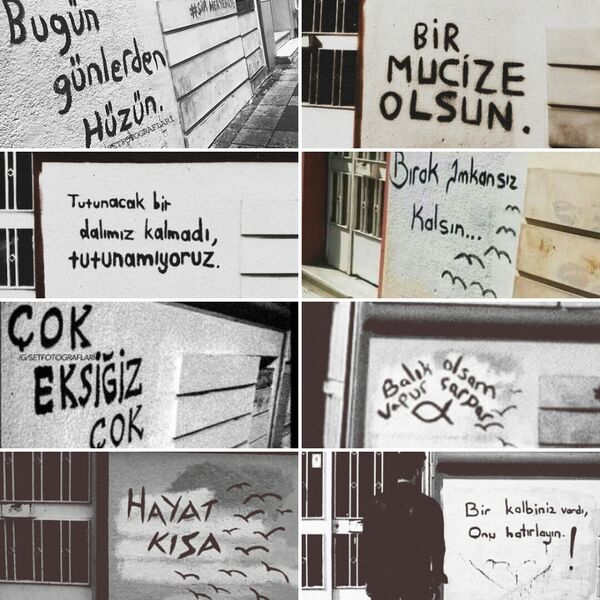 Bugün
günlerden
Hüzün.
/SETFOTOGRAFLARI
BİR
MUCİZE
OLSUN.
Tutunacak bir
dalımız kalmadı,
tutunamıyoruz.
Bırak İmkansız
Kalsın...
ÇOK
/G/SETFOTOGRAFLARI
EKSİĞİZ
ÇOK
Balık olsam
vapur çarpar
HAYAT
KISA
Bir kalbiniz vardı,
Onu hatırlayın.!